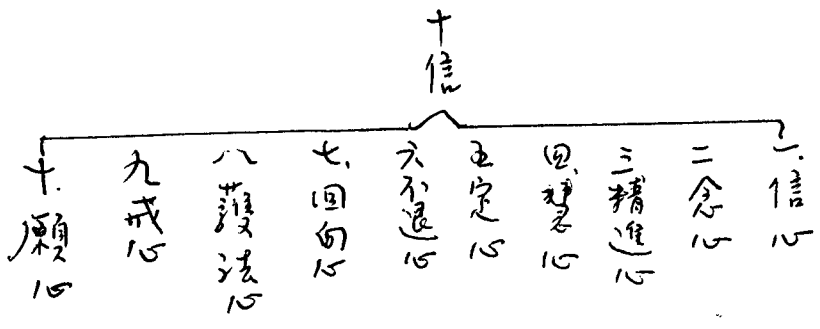 十信
一、信心
二念心
三精進心
四、慧心
五定心
六不退心
七、回向心
八護法心
九戒心
十、願心